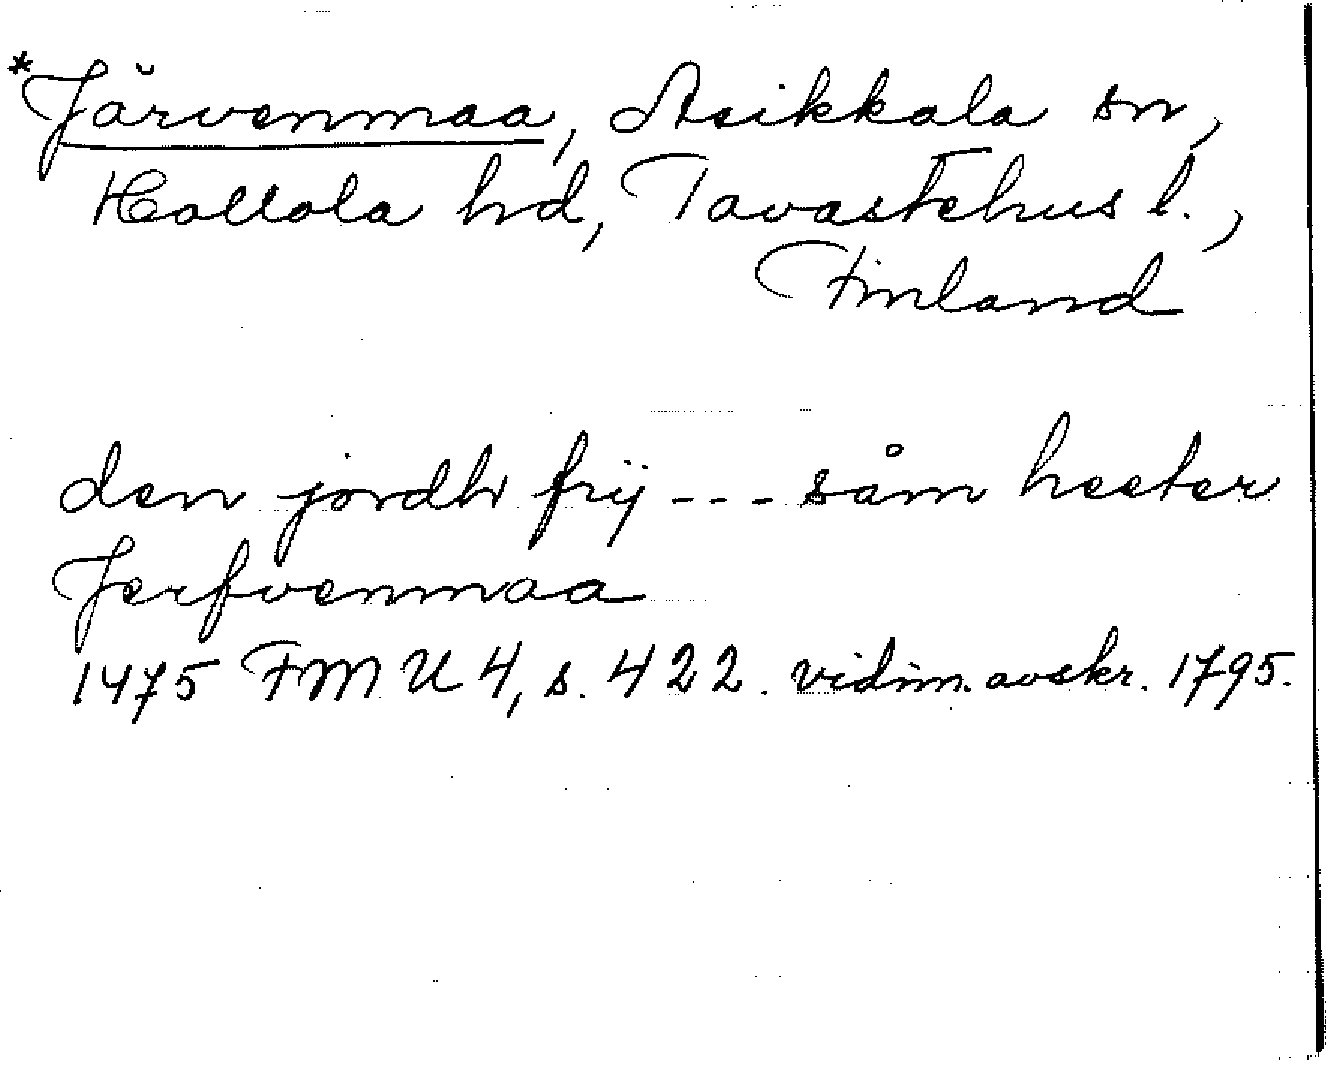 *Järvenmaa, Asikkala sn,
Hollola hd, Tavastehus l.,
Finland
den jordh frij --- såm heeter
Jerfvenmaa
1475 FMU 4, s. 422. vidim. avskr. 1795.